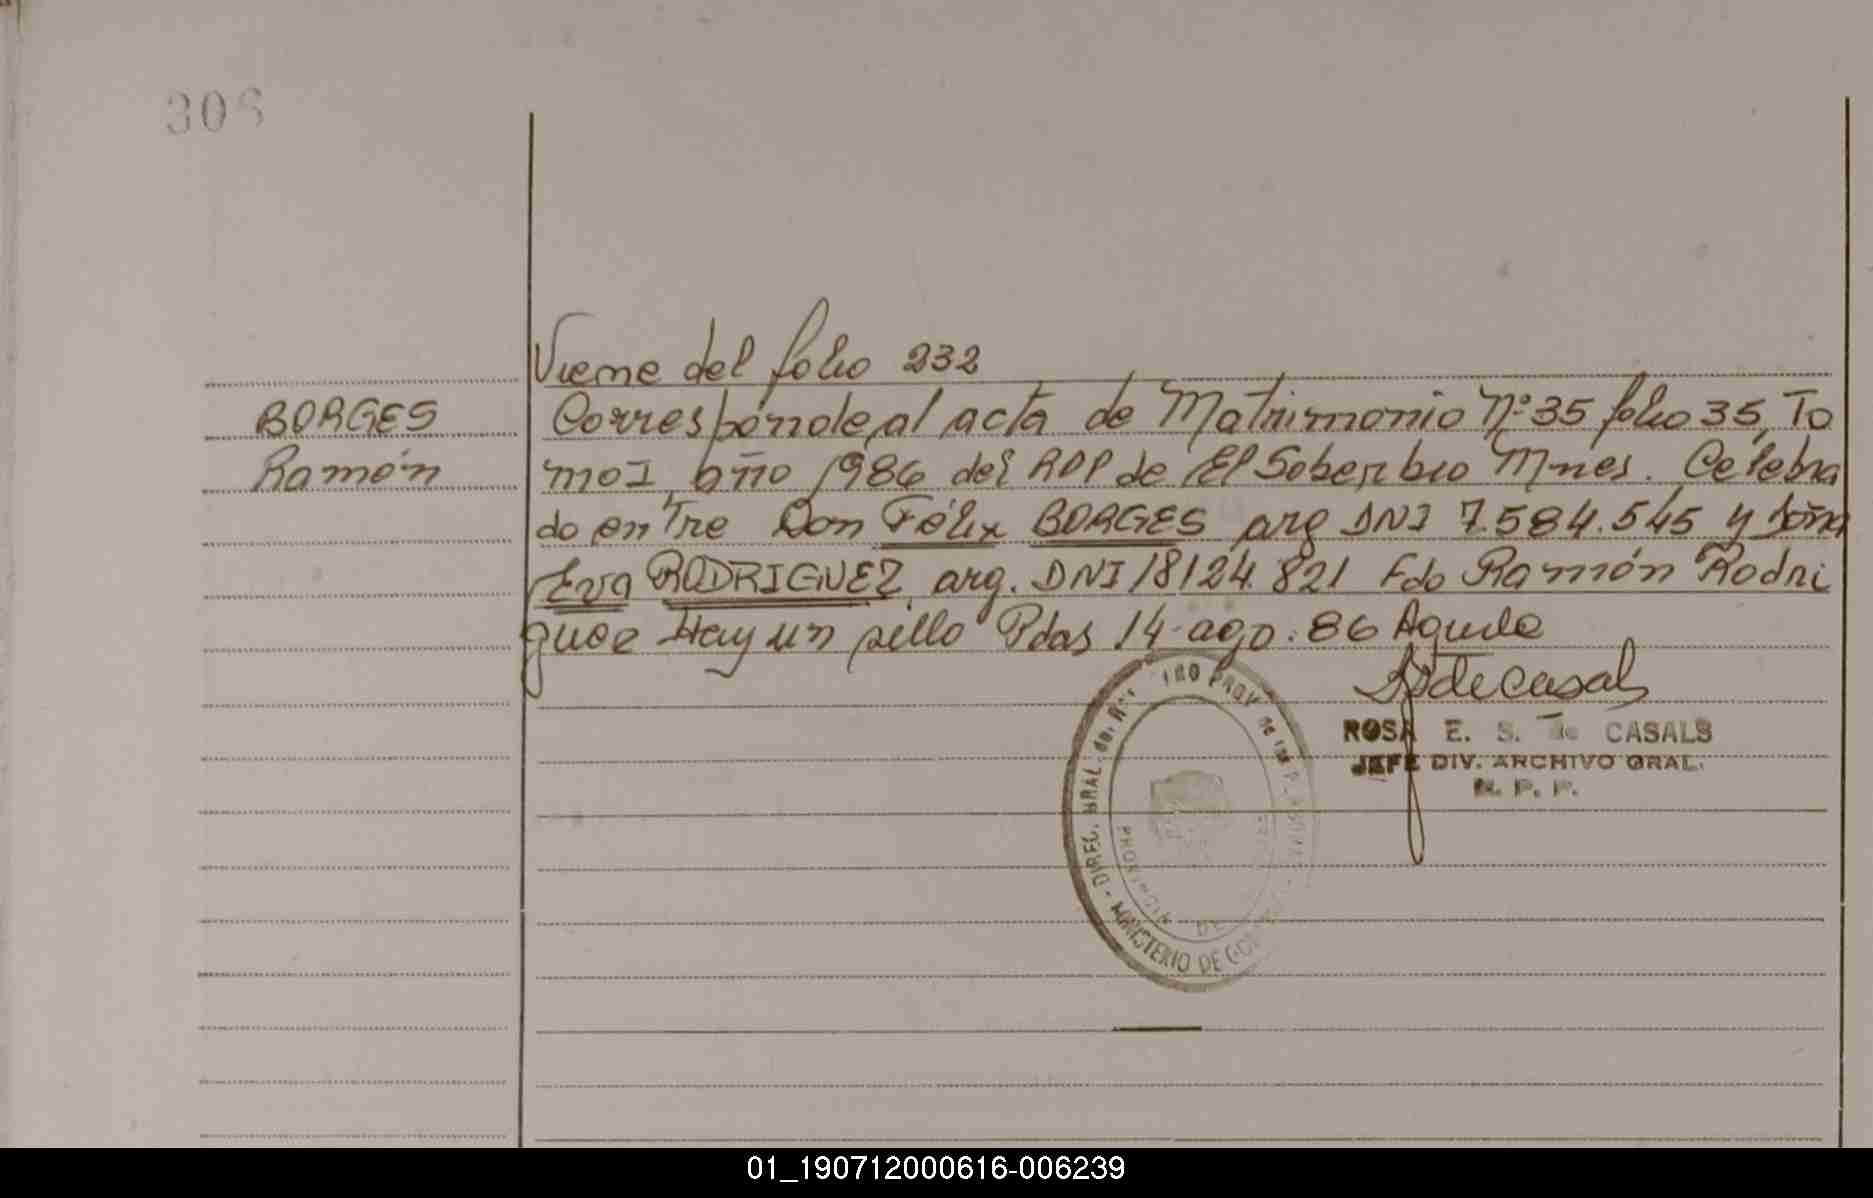 306
Viene del folio 232
BORGES
Ramón
Corresponde al acta de Matrimonio Nº 35 folio 35, To
mo I, año 1986 del RDP de El Soberbio Mnes. Celebra
do entre Don Félix BORGES arg DNI 7.584.545 y doña
Eva RODRIGUEZ, arg. DNI 18124.821 Fdo Ramón Rodri
guez Hay un sello Pdas 14-ago.86 Aguda
S de Casals
ROSA E. S. de CASALS
JEFE DIV. ARCHIVO GRAL.
R. P. P.
DIREC. GRAL. del PROV. de las
MINISTERIO DE
PROVINCIA DE
01_190712000616-006239